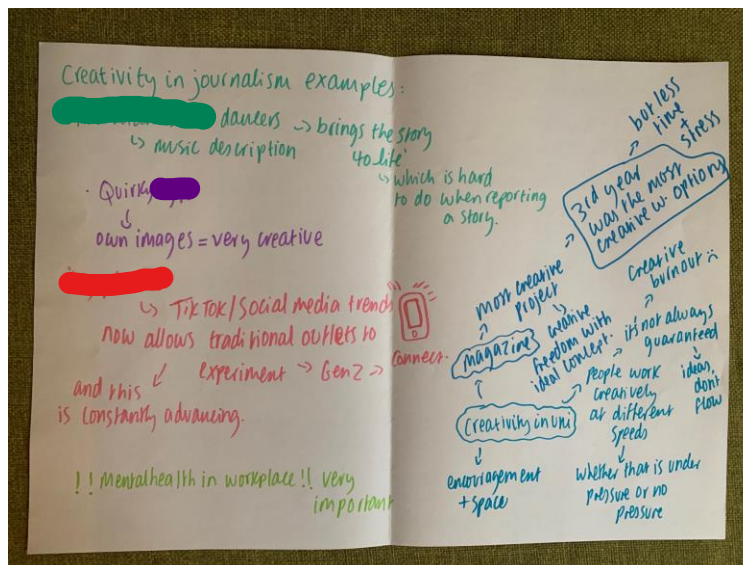 Creativity in journalism examples:
dancers → brings the story
↳ music description
"to life"
↳ which is hard
to do when reporting
a story.
· Quirky
↓
own images = very creative
↳ TikTok/Social media trends
now allows traditional outlets to
experiment → Gen Z → connect.
and this
is constantly advancing.
!! Mental health in workplace !! very
important
but less
time +
stress
3rd year
was the most
creative w. options
most creative
project
creative
freedom with
ideal concept.
magazine
creative
burnout :(
it's not always
guaranteed
ideas,
dont
flow
people work
creatively
at different
speeds
Creativity in uni
encouragement
+ space
whether that is under
pressure or no
pressure